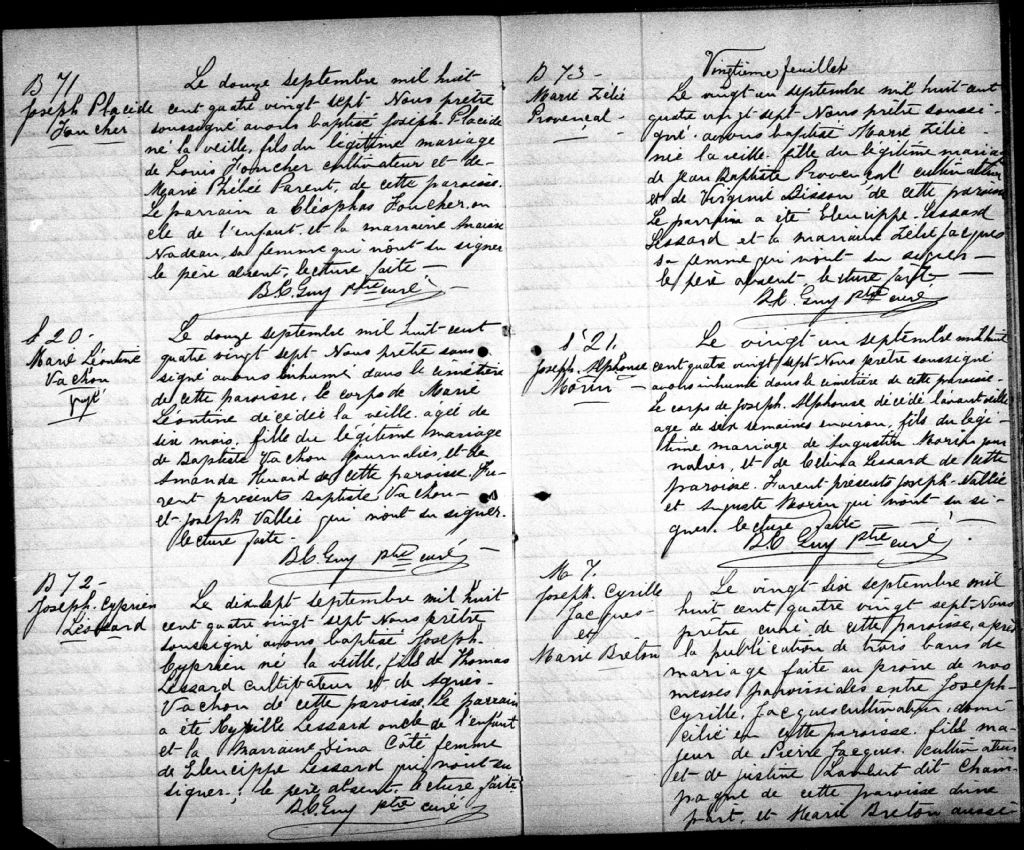 B 71
Joseph Placide
Foucher
Le douze septembre mil huit
cent quatre vingt sept Nous prêtre
soussigné avons baptisé Joseph Placide
né la veille, fils du légitime mariage
de Louis Foucher cultivateur et de
Marie Parent, de cette paroisse.
Le parrain a Cléophas Foucher, on
cle de l'enfant et la marraine
Nadeau, sa femme qui n'ont su signer
le père absent, lecture faite —
B.C. Guy ptre curé
S 20 -
Marie Léontine
Vachon
Le douze septembre mil huit-cent
quatre vingt sept Nous prêtre sous
signé avons inhumé dans le cimetière
de cette paroisse, le corps de Marie
Léontine décédée la veille, agée de
six mois, fille du légitime mariage
de Baptiste Vachon journalier, et de
Amanda de cette paroisse. Fu
rent présents Baptiste Vachon
et Joseph Vallée qui n'ont su signer.
lecture faite -
B.C. Guy ptre curé
B 72 -
Joseph. Cyprien
Lessard
Le dix sept septembre mil huit
cent quatre vingt sept Nous prêtre
soussigné avons baptisé Joseph
Cyprien né la veille, fils de Thomas
Lessard cultivateur et de Agnès
Vachon de cette paroisse. Le parrain
a été Lessard oncle de l'enfant
et la Marraine Dina Côté femme
de Eleucippe Lessard qui n'ont su
signer, le père absent, lecture faite
B.C. Guy ptre curé
Vingtième feuillet
B 73 -
Marie Zélie
Provençal -
Le vingt un septembre mil huit cent
quatre vingt sept Nous prêtre soussi
gné avons baptisé Marie Zélie
née la veille fille du légitime mariage
de Jean Baptiste Provençal cultivateur
et de Virginie Bisson de cette paroisse
Le parrain a été Eleucippe Lessard
Lessard et la marraine Zélie Jacques
sa femme qui n'ont su signer
le père absent lecture faite
B.C. Guy ptre curé
S 21.
Joseph. Alphonse
Morin -
Le vingt un septembre mil huit
cent quatre vingt sept Nous prêtre soussigné
avons inhumé dans le cimetière de cette paroisse
le corps de Joseph. Alphonse décédé l'avant veille
age de six semaines environ, fils du légi
time mariage de Augustin Morin jour
nalier, et de Célina Lessard de cette
paroisse. Furent présents Joseph Vallée
et Auguste Morin qui n'ont su si
gner. lecture faite
B.C Guy ptre curé
M 7.
Joseph. Cyrille
Jacques
et
Marie Breton
Le vingt six septembre mil
huit cent quatre vingt sept Nous
prêtre curé de cette paroisse, après
la publication de trois bans de
mariage faite au prone de nos
messes paroissiales entre Joseph
Cyrille, Jacques cultivateur, domi
cilié en cette paroisse. fils ma
jeur de Pierre Jacques. cultivateur
et de Justine Lambert dit Cham
pagne de cette paroisse d'une
part, et Marie Breton aussi